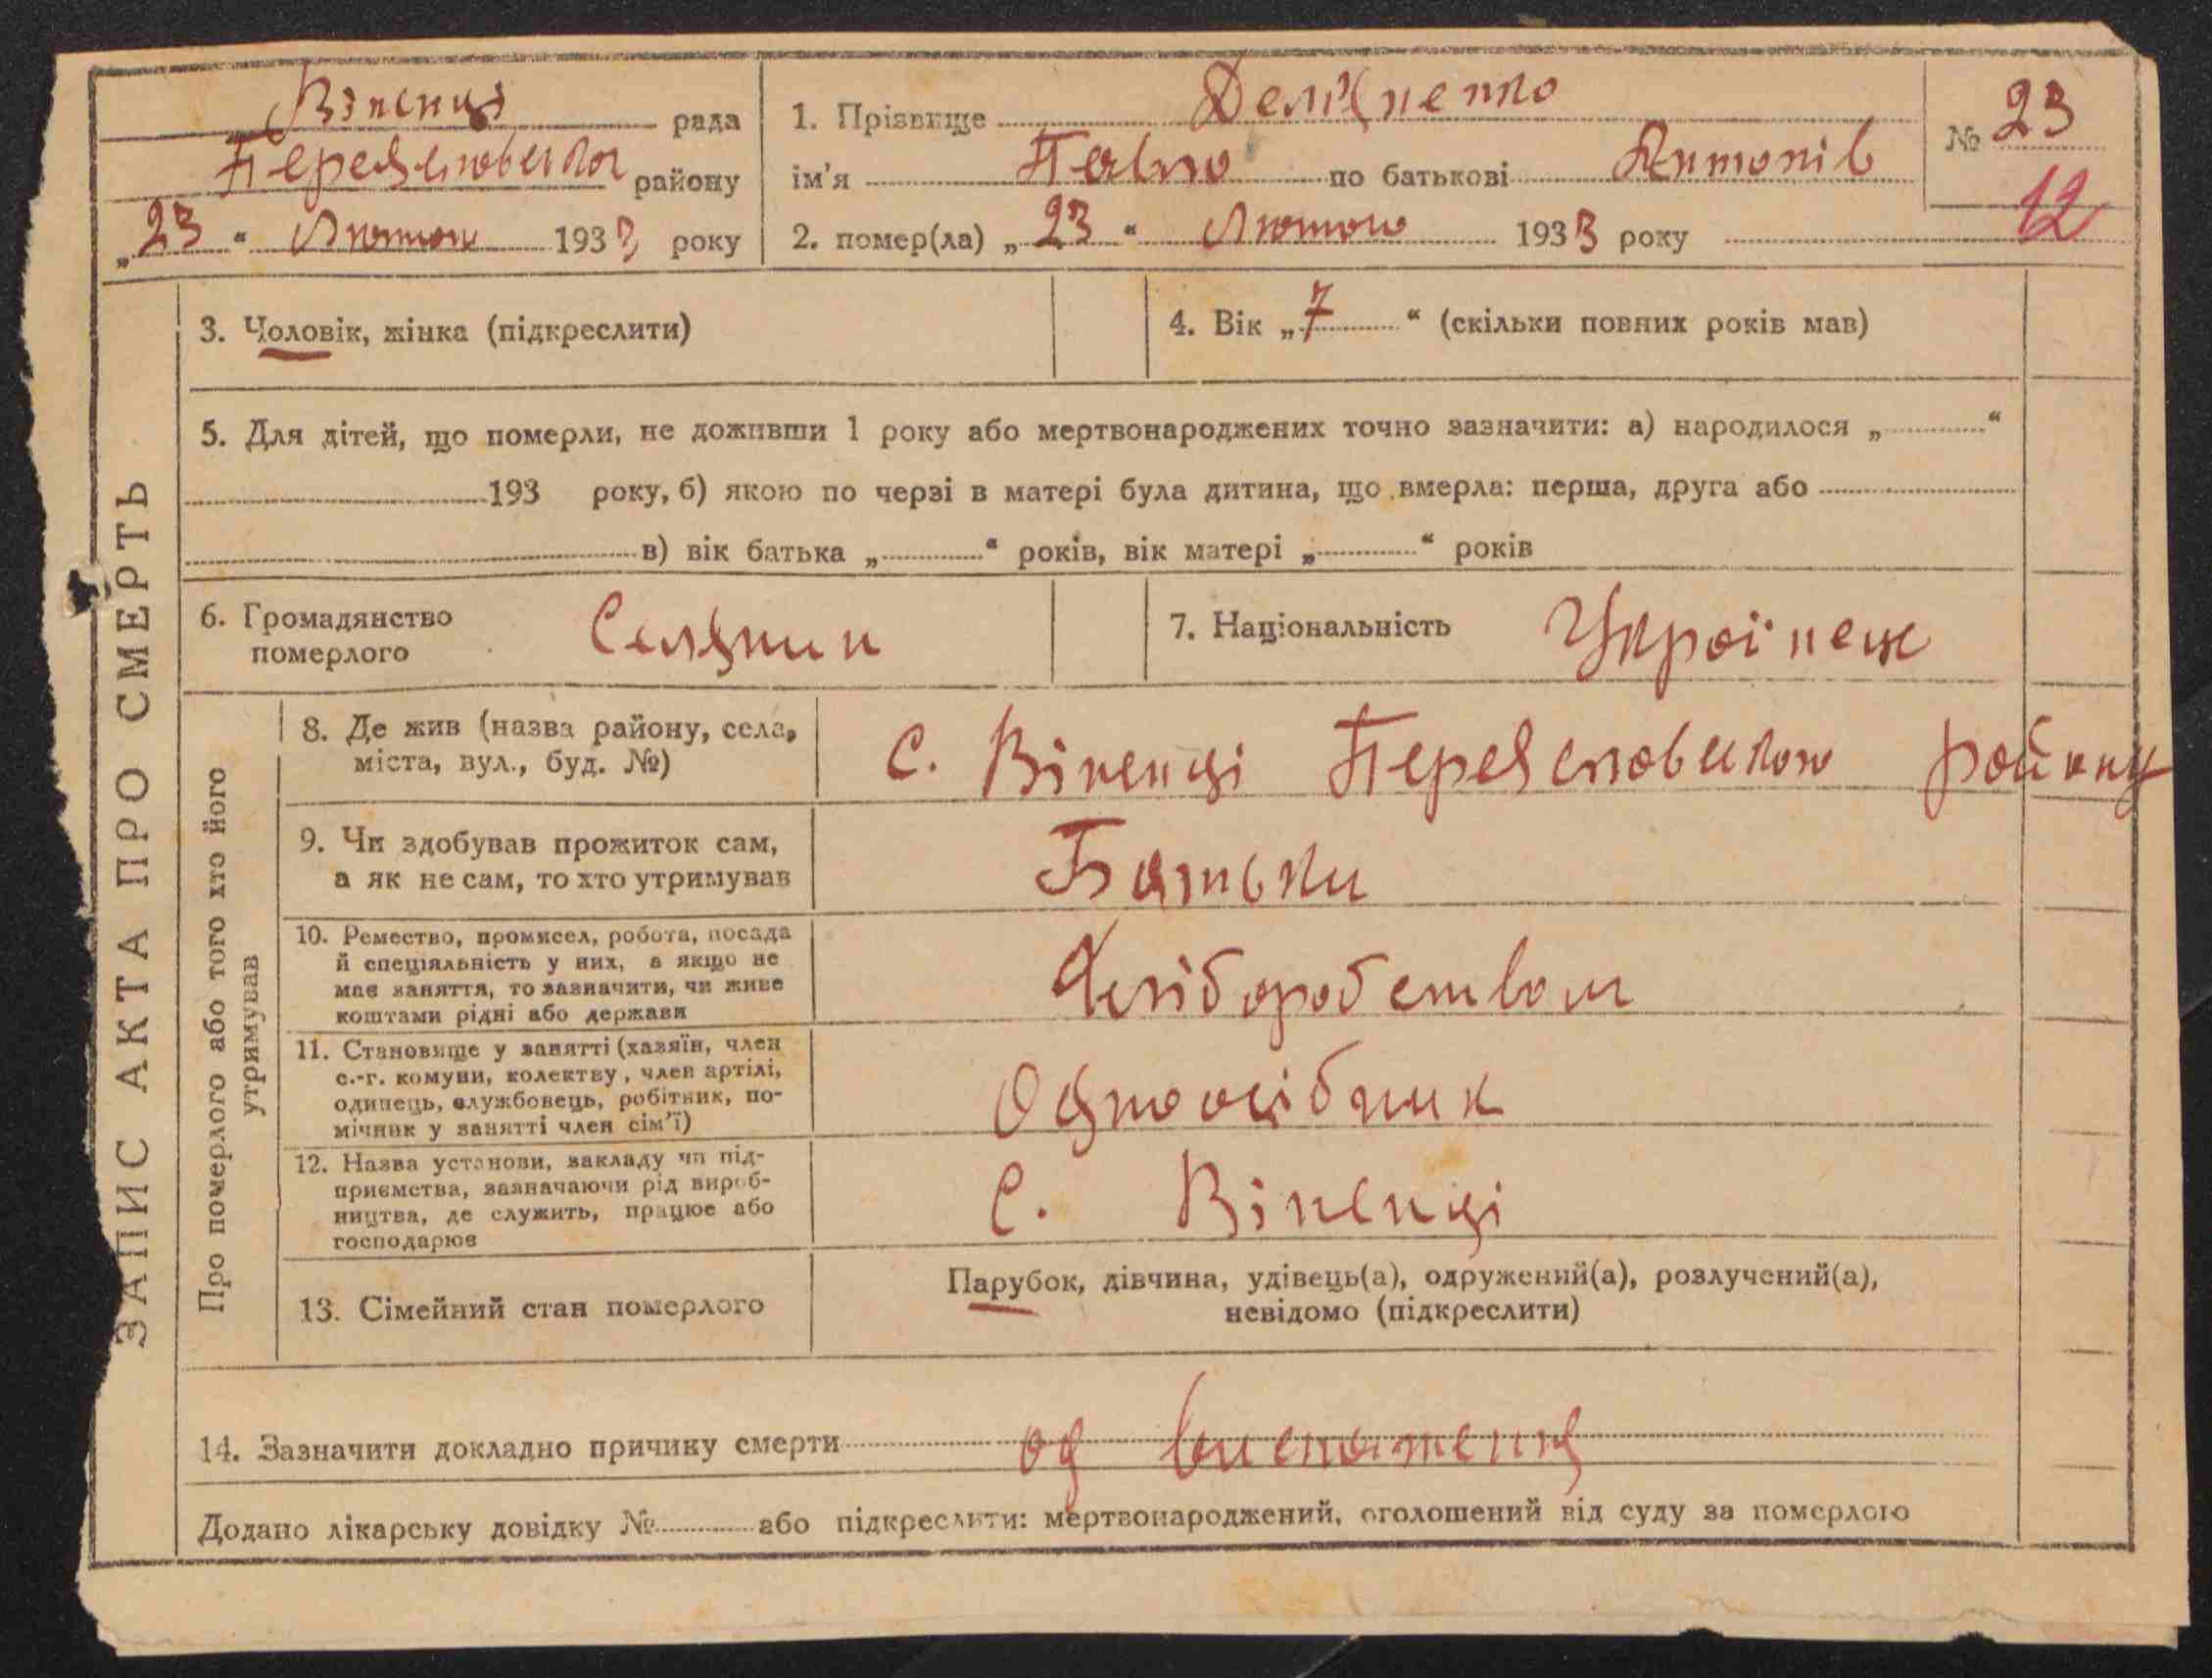 Віненці рада
Переяславського району
„23“ Лютого 1933 року
1. Прізвище Демяненко
ім'я Павло по батькові Антонів
2. помер(ла) „23“ Лютого 1933 року
№ 23
12
ЗАПИС АКТА ПРО СМЕРТЬ
3. Чоловік, жінка (підкреслити)
4. Вік „7“ (скільки повних років мав)
5. Для дітей, що померли, не доживши 1 року або мертвонароджених точно зазначити: а) народилося „ “
193 року, б) якою по черзі в матері була дитина, що вмерла: перша, друга або
в) вік батька „ “ років, вік матері „ “ років
6. Громадянство
померлого
Селянин
7. Національність Українец
Про померлого або того хто його
утримував
8. Де жив (назва району, села,
міста, вул., буд. №)
С. Віненці Переяславського району
9. Чи здобував прожиток сам,
а як не сам, то хто утримував
Батьки
10. Ремество, промисел, робота, посада
й спеціяльність у них, а якщо не
має заняття, то зазначити, чи живе
коштами рідні або держави
Хліборобством
11. Становище у занятті (хазяїн, член
с.-г. комуни, колективу, член артілі,
одинець, службовець, робітник, по-
мічник у занятті член сім'ї)
Одноосібник
12. Назва установи, закладу чи під-
приємства, зазначаючи рід вироб-
ництва, де служить, працює або
господарює
С. Віненці
13. Сімейний стан померлого
Парубок, дівчина, удівець(а), одружений(а), розлучений(а),
невідомо (підкреслити)
14. Зазначити докладно причину смерти од виснаження
Додано лікарську довідку № або підкреслити: мертвонароджений, оголошений від суду за померлого